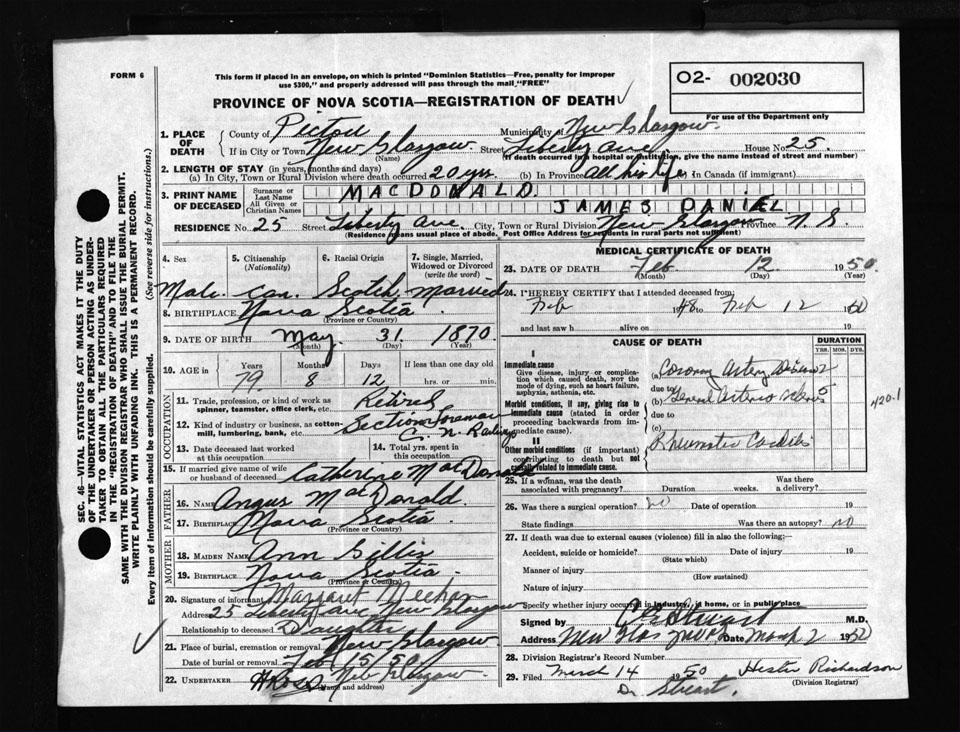 FORM 6
This form if placed in an envelope, on which is printed "Dominion Statistics—Free, penalty for improper
use $300," and properly addressed will pass through the mail "FREE"
O2- 002030
PROVINCE OF NOVA SCOTIA—REGISTRATION OF DEATH
For use of the Department only
1. PLACE OF DEATH County of Pictou Municipality of New Glasgow
If in City or Town New Glasgow Street Liberty Ave. House No. 25
(Name) (If death occurred in a hospital or institution, give the name instead of street and number)
2. LENGTH OF STAY (in years, months and days)
(a) In City, Town or Rural Division where death occurred 20 yrs. (b) In Province All his life In Canada (if immigrant)
3. PRINT NAME OF DECEASED Surname or Last Name MACDONALD
All Given or Christian Names JAMES DANIEL
RESIDENCE No. 25 Street Liberty Ave. City, Town or Rural Division New Glasgow Province N. S.
(Residence means usual place of abode. Post Office Address for residents in rural parts not sufficient)
4. Sex Male
5. Citizenship (Nationality) Can.
6. Racial Origin Scotch
7. Single, Married, Widowed or Divorced (write the word) Married
8. BIRTHPLACE Nova Scotia
(Province or Country)
9. DATE OF BIRTH May 31 1870
(Month) (Day) (Year)
10. AGE in Years Months Days If less than one day old
79 8 12 hrs. or min.
OCCUPATION
11. Trade, profession or kind of work as spinner, teamster, office clerk, etc. Retired
12. Kind of industry or business, as cotton-mill, lumbering, bank, etc. Section Foreman
C. N. Railway
13. Date deceased last worked at this occupation
14. Total yrs. spent in this occupation
15. If married give name of wife or husband of deceased Catherine MacDonald
FATHER
16. NAME Angus MacDonald
17. BIRTHPLACE Nova Scotia
(Province or Country)
MOTHER
18. MAIDEN NAME Ann Gillis
19. BIRTHPLACE Nova Scotia
(Province or Country)
20. Signature of informant Margaret
Address 25 Liberty Ave New Glasgow
Relationship to deceased Daughter
21. Place of burial, cremation or removal New Glasgow
Date of burial or removal Feb 15/50
22. UNDERTAKER New Glasgow
(Name and address)
MEDICAL CERTIFICATE OF DEATH
23. DATE OF DEATH Feb 12 1950
(Month) (Day)
24. I HEREBY CERTIFY that I attended deceased from:
Feb 1948 to Feb 12 1950
and last saw h alive on 19
CAUSE OF DEATH
DURATION
YRS. MOS. DYS.
I
Immediate cause
Give disease, injury or complication which caused death, NOT the mode of dying, such as heart failure, asphyxia, asthenia, etc.
(a) Coronary Artery Disease
due to
Morbid conditions, if any, giving rise to immediate cause (stated in order proceeding backwards from immediate cause).
(b) General Arterio Sclerosis 5
due to
(c)
420.1
II
Other morbid conditions (if important) contributing to death but not causally related to immediate cause.
Rheumatic Carditis
25. If a woman, was the death associated with pregnancy? Duration weeks. Was there a delivery?
26. Was there a surgical operation? No Date of operation 19
State findings Was there an autopsy? No
27. If death was due to external causes (violence) fill in also the following:
Accident, suicide or homicide? Date of injury 19
(State which)
Manner of injury
(How sustained)
Nature of injury
Specify whether injury occurred in industry, in home, or in public place
Signed by Stuart M.D.
Address New Glasgow Date March 2 1950
28. Division Registrar's Record Number
29. Filed March 14 1950 Hester Richardson
(Division Registrar)
Dr. Stuart.
SEC. 46—VITAL STATISTICS ACT MAKES IT THE DUTY
OF THE UNDERTAKER OR PERSON ACTING AS UNDER-
TAKER TO OBTAIN ALL THE PARTICULARS REQUIRED
IN THE "REGISTRATION OF DEATH" AND TO FILE THE
SAME WITH THE DIVISION REGISTRAR WHO SHALL ISSUE THE BURIAL PERMIT.
WRITE PLAINLY WITH UNFADING INK. THIS IS A PERMANENT RECORD.
Every item of information should be carefully supplied. (See reverse side for instructions.)